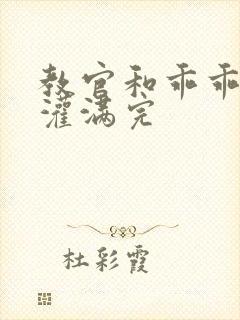 教官和乖乖
灌满完
杜彩霞